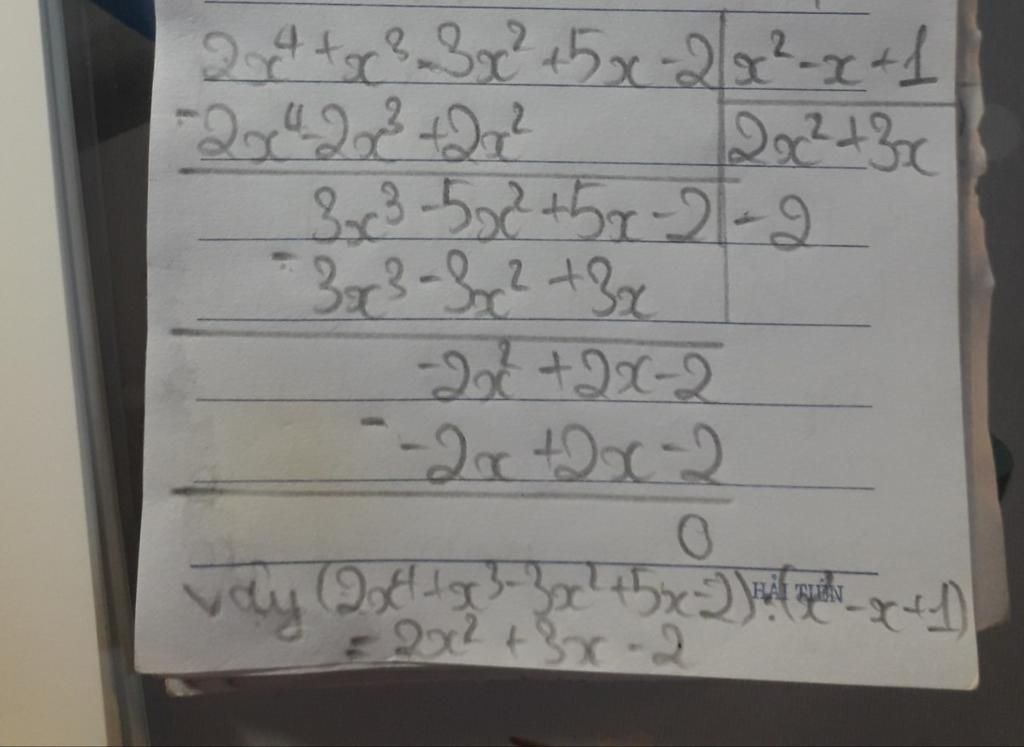 2x⁴ + x³ - 3x² + 5x - 2 | x² - x + 1
- 2x⁴ - 2x³ + 2x² | 2x² + 3x
3x³ - 5x² + 5x - 2 | - 2
- 3x³ - 3x² + 3x
-2x² + 2x - 2
- -2x + 2x - 2
0
HẢI TIẾN
vậy (2x⁴ + x³ - 3x² + 5x - 2) : (x² - x + 1)
= 2x² + 3x - 2